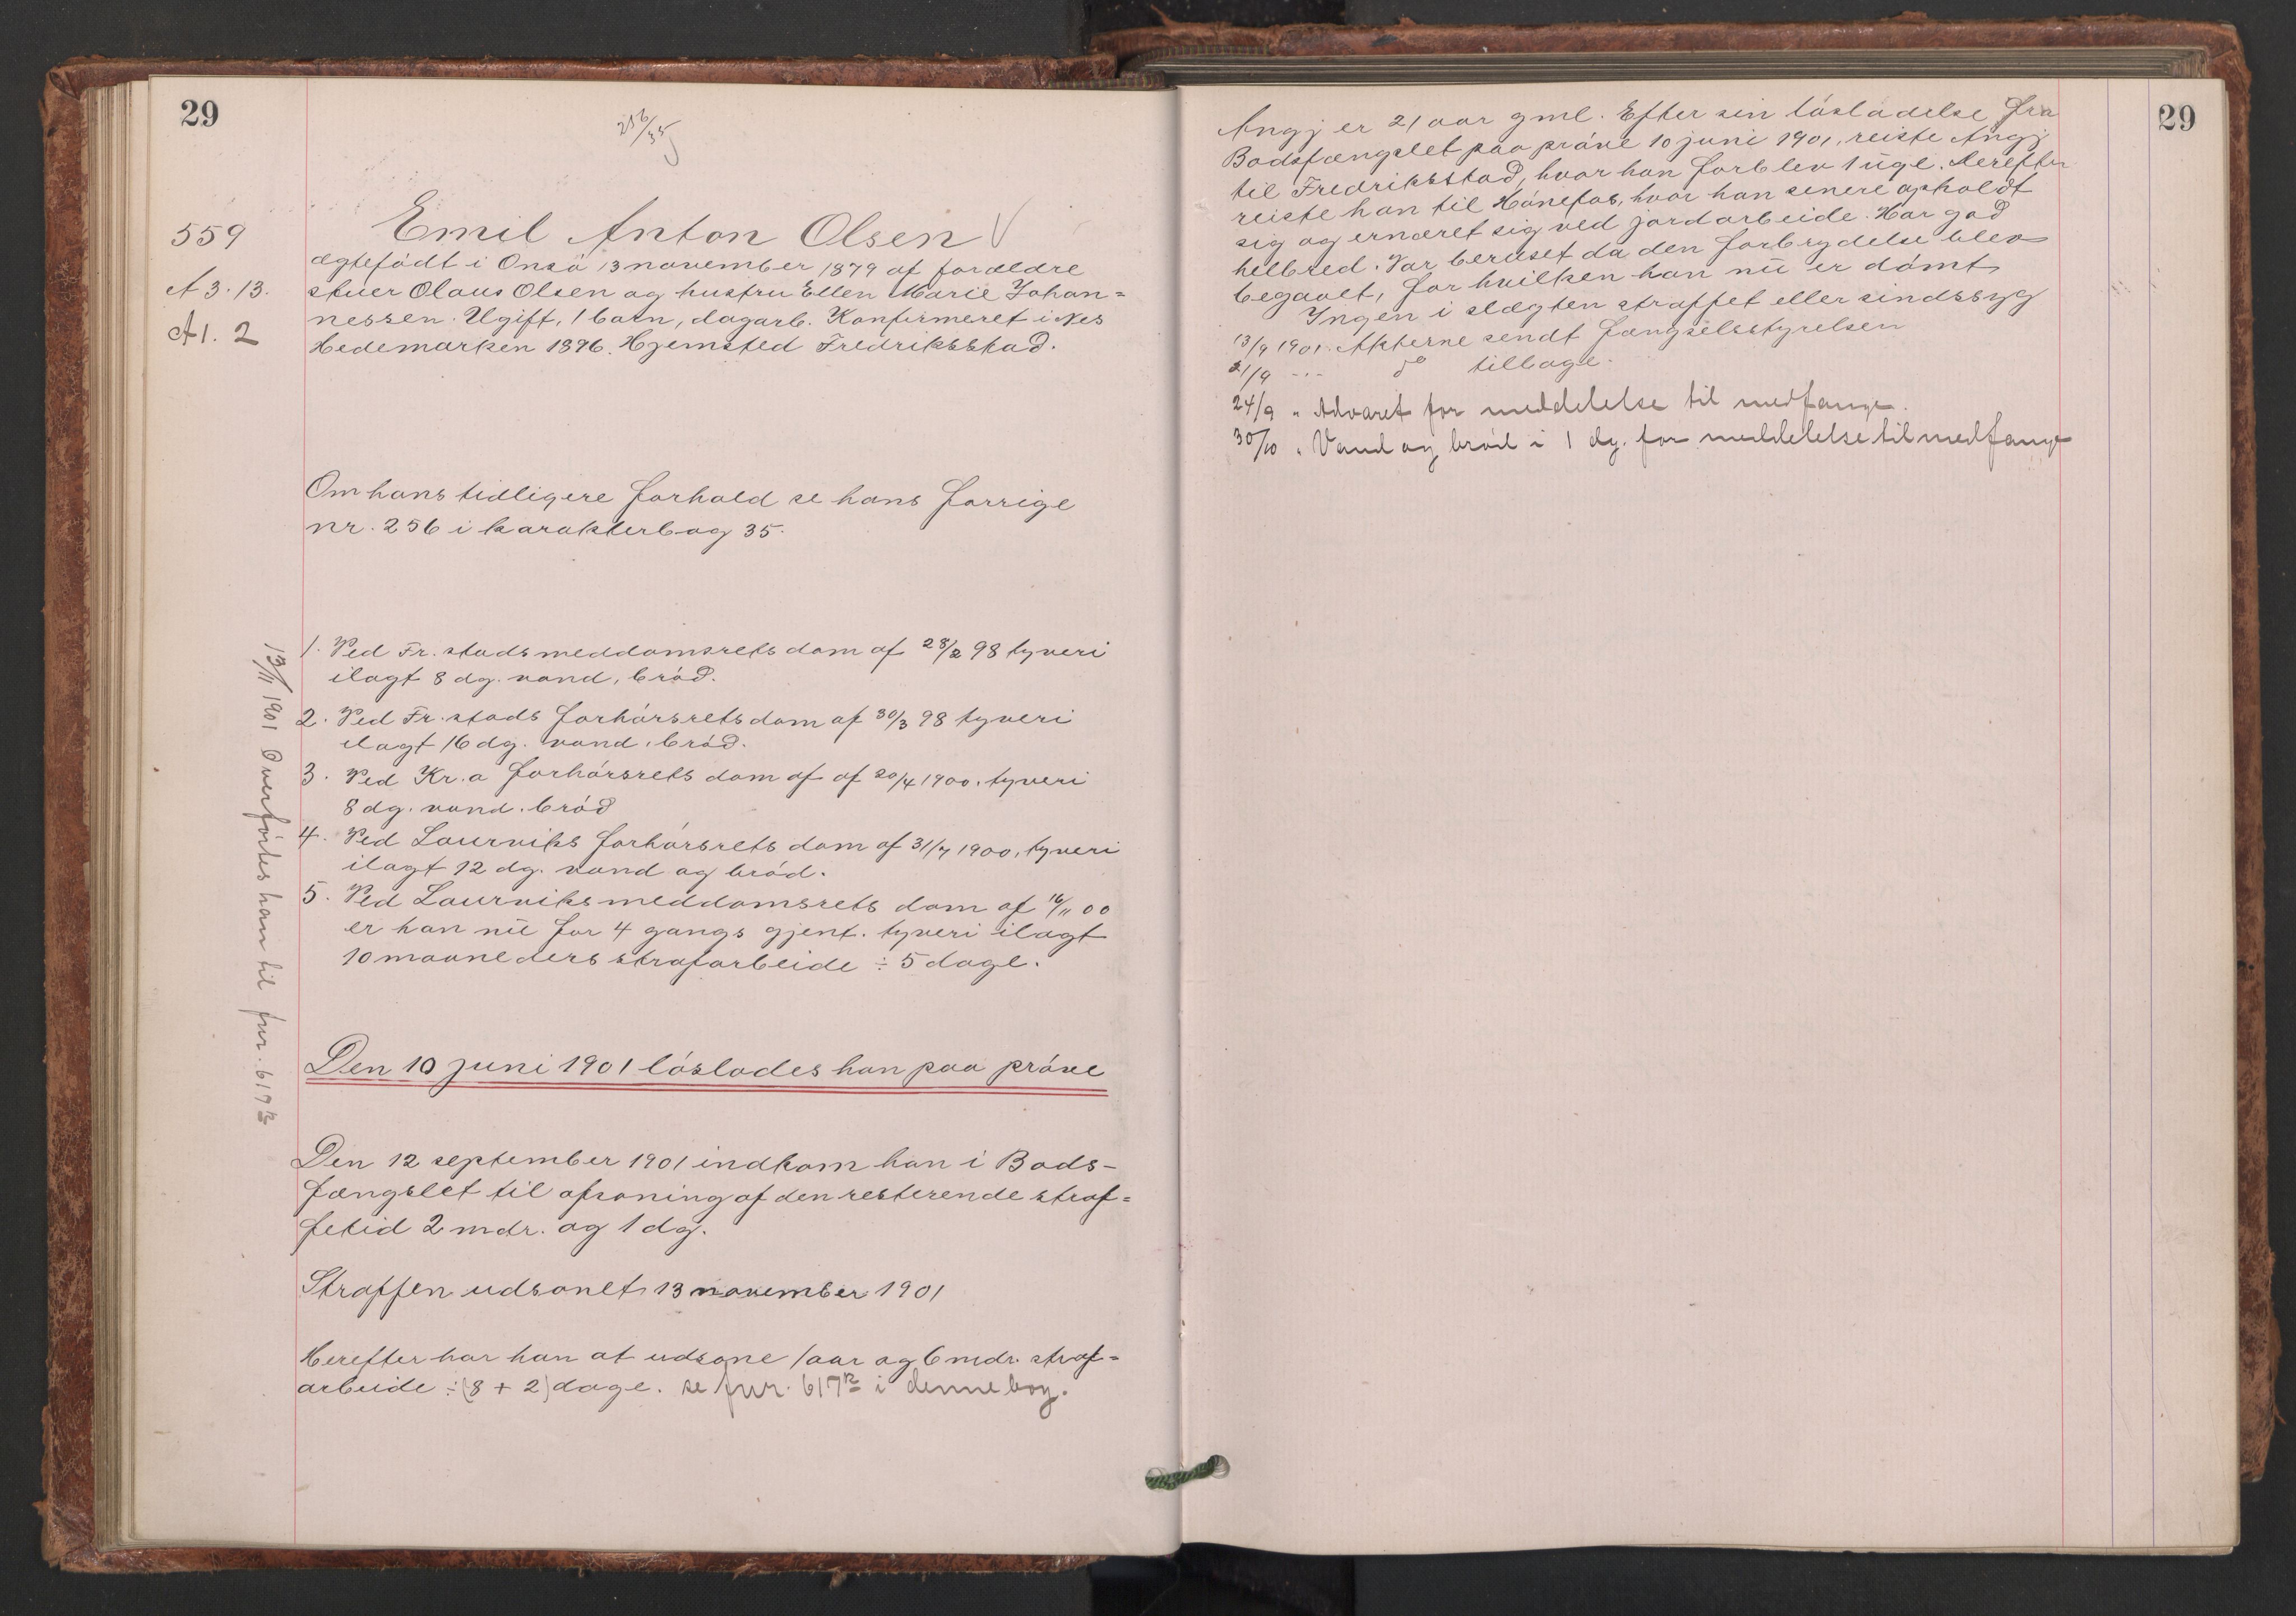 29
256/35
559
A 3.13.
A 1. 2
Emil Anton Olsen
ægtefødt i Onsø 13 november 1879 af forældre
stuer Olaus Olsen og hustru Ellen Marie Johan=
nessen. Ugift, 1 barn, dagarb. Konfirmeret i Nes
Hedemarken 1896. Hjemsted Fredriksstad.
Om hans tidligere forhold se hans forrige
nr. 256 i karakterbog 35.
1. Ved Fr. stads meddomsrets dom af 28/2 98 tyveri
ilagt 8 dg. vand, brød.
2. Ved Fr. stads forhørsrets dom af 30/3 98 tyveri
ilagt 16 dg. vand, brød.
3. Ved Kr.a forhørsrets dom af af 20/4 1900. tyveri
8 dg. vand. brød
4. Ved Laurviks forhørsrets dom af 31/7 1900, tyveri
ilagt 12 dg. vand og brød.
5. Ved Laurviks meddomsrets dom af 16/11 00
er han nu for 4 gangs gjent. tyveri ilagt
10 maaneders strafarbeide ÷ 5 dage.
13/11 1901 Overførtes han til fnr. 617
Den 10 juni 1901 løslodes han paa prøve
Den 12 september 1901 indkom han i Bods-
fængslet til afsoning af den resterende straf=
fetid 2 mdr. og 1 dg.
Straffen udsonet 13 november 1901
Herefter har han at udsone 1 aar og 6 mdr. straf=
arbeide ÷ (8 + 2) dage. se fnr. 617 i denne bog.
29
Angj er 21 aar gml. Efter sin løsladelse fra
Bodsfængslet paa prøve 10 juni 1901, reiste Angj
til Fredriksstad, hvor han forblev 1 uge. Derefter
reiste han til Hønefos, hvor han senere opholdt
sig og ernæret sig ved jordarbeide. Har god
helbred. Var beruset da den forbrydelse blev
begaaet, for hvilken han nu er dømt.
Ingen i slægten straffet eller sindssyg
13/9 1901. Akterne sendt fængselsstyrelsen
21/9 -..- do tilbage.
24/9 " Advaret for meddelelse til medfange.
30/10 " Vand og brød i 1 dg. for meddelelse til medfange